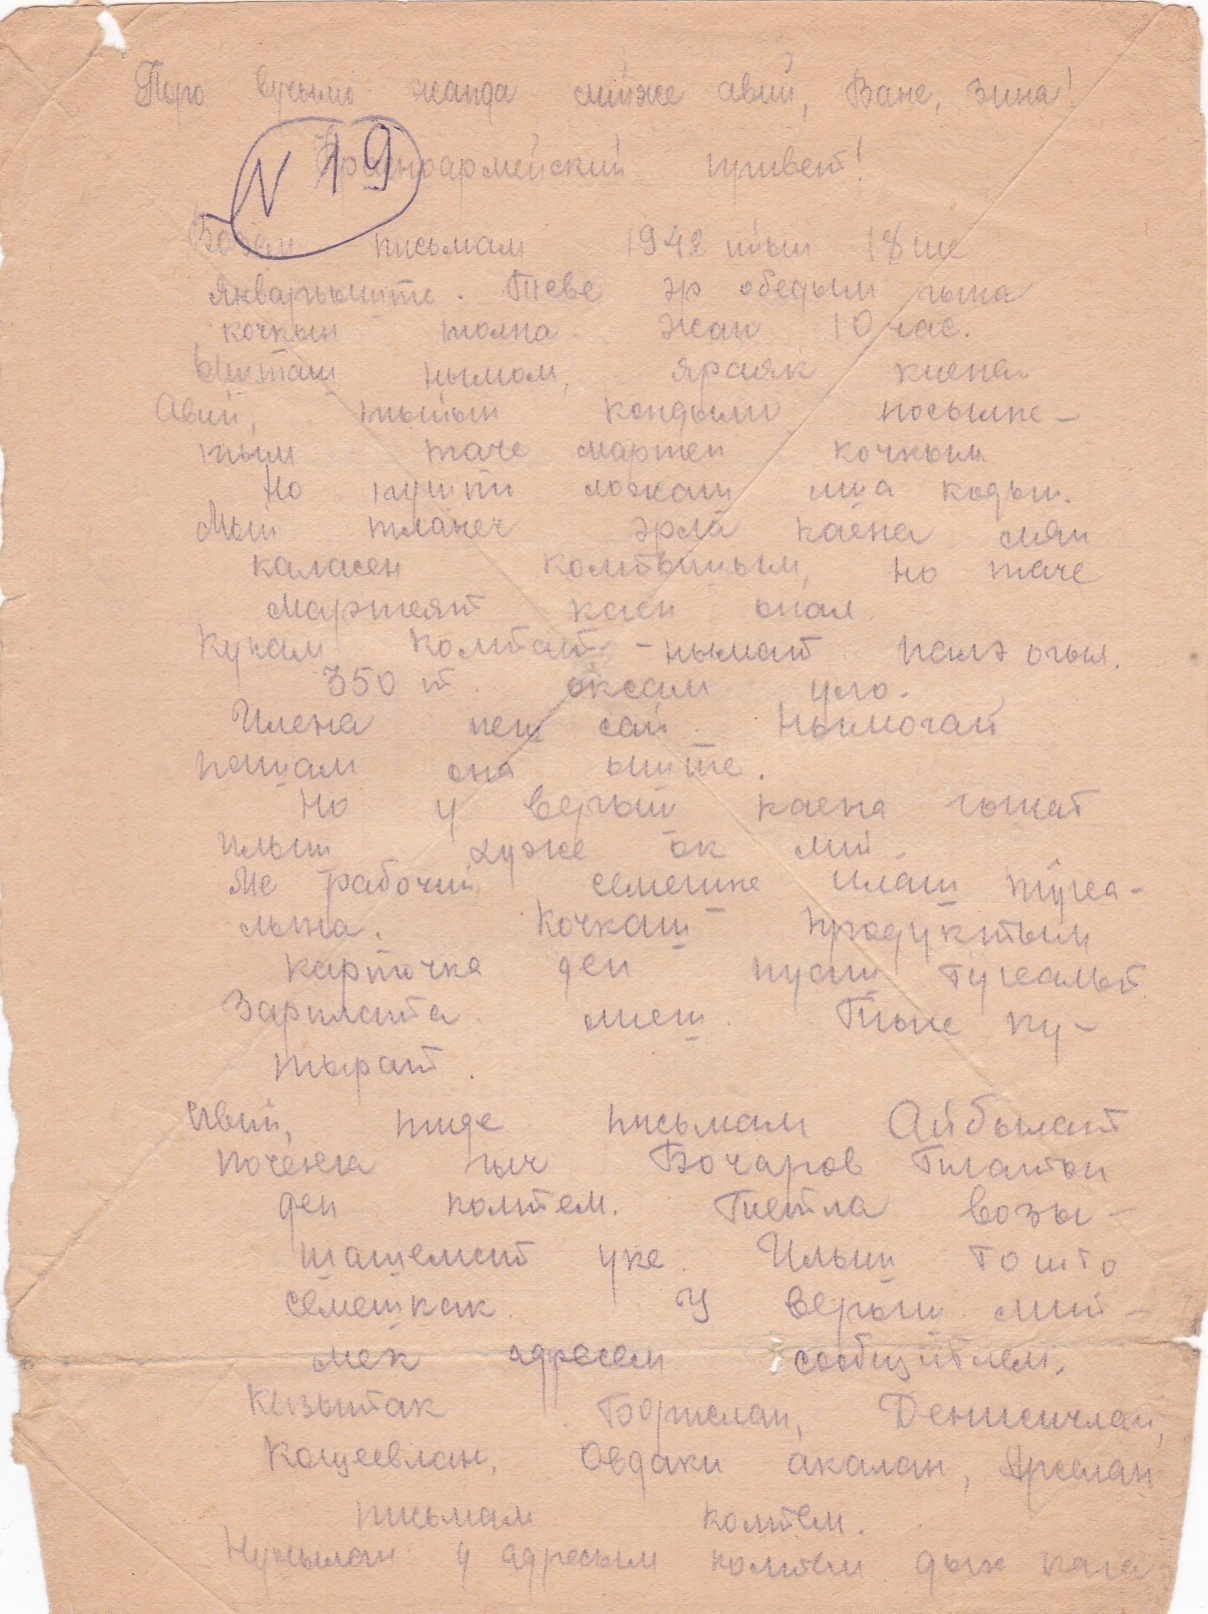 Поро вучымо жапда лийже авий, Ване, Зина!
Красноармейский привет!
N 19
Возем письмам 1942 ийын 18 ше
январыште. Теве эр обедым гына
кочкын толна. Жап 10 час.
Ышташ нымом, ярсяк киена
Авий, тыйын кондымо посылке-
тым таче мартен кочкым
Но пушто ложаш иша кодын.
Мый тланеч эрла каена мян
каласен колтышым, но таче
мартеят каен онал.
Кушам колтат - нымат палэ огыл.
350 т. оксам уло.
Илена пеш сай. Нымогай
пашам она ыште.
Но у верыш каена гынат
илыш хуже ок лий.
Ме рабочий семешке илаш тӱҥа-
лына. Кочкаш продуктым
карточка ден пуаш тӱҥалыт
Зарплата лиеш. Тыге ку-
тырат.
Авий, тиде письмам Айбылат
поченга гыч Бочаров Платон
ден колтем. Тетла возы-
шашемат уке. Илыш тошто
семешкак. У верыш мий-
мек адресем сообщитлем.
Кизытак Борислан, Денисичлан,
Кощеевлан, Овдаки акалан,
письмам колтем.
Нунылан у адресым колтем дык вара